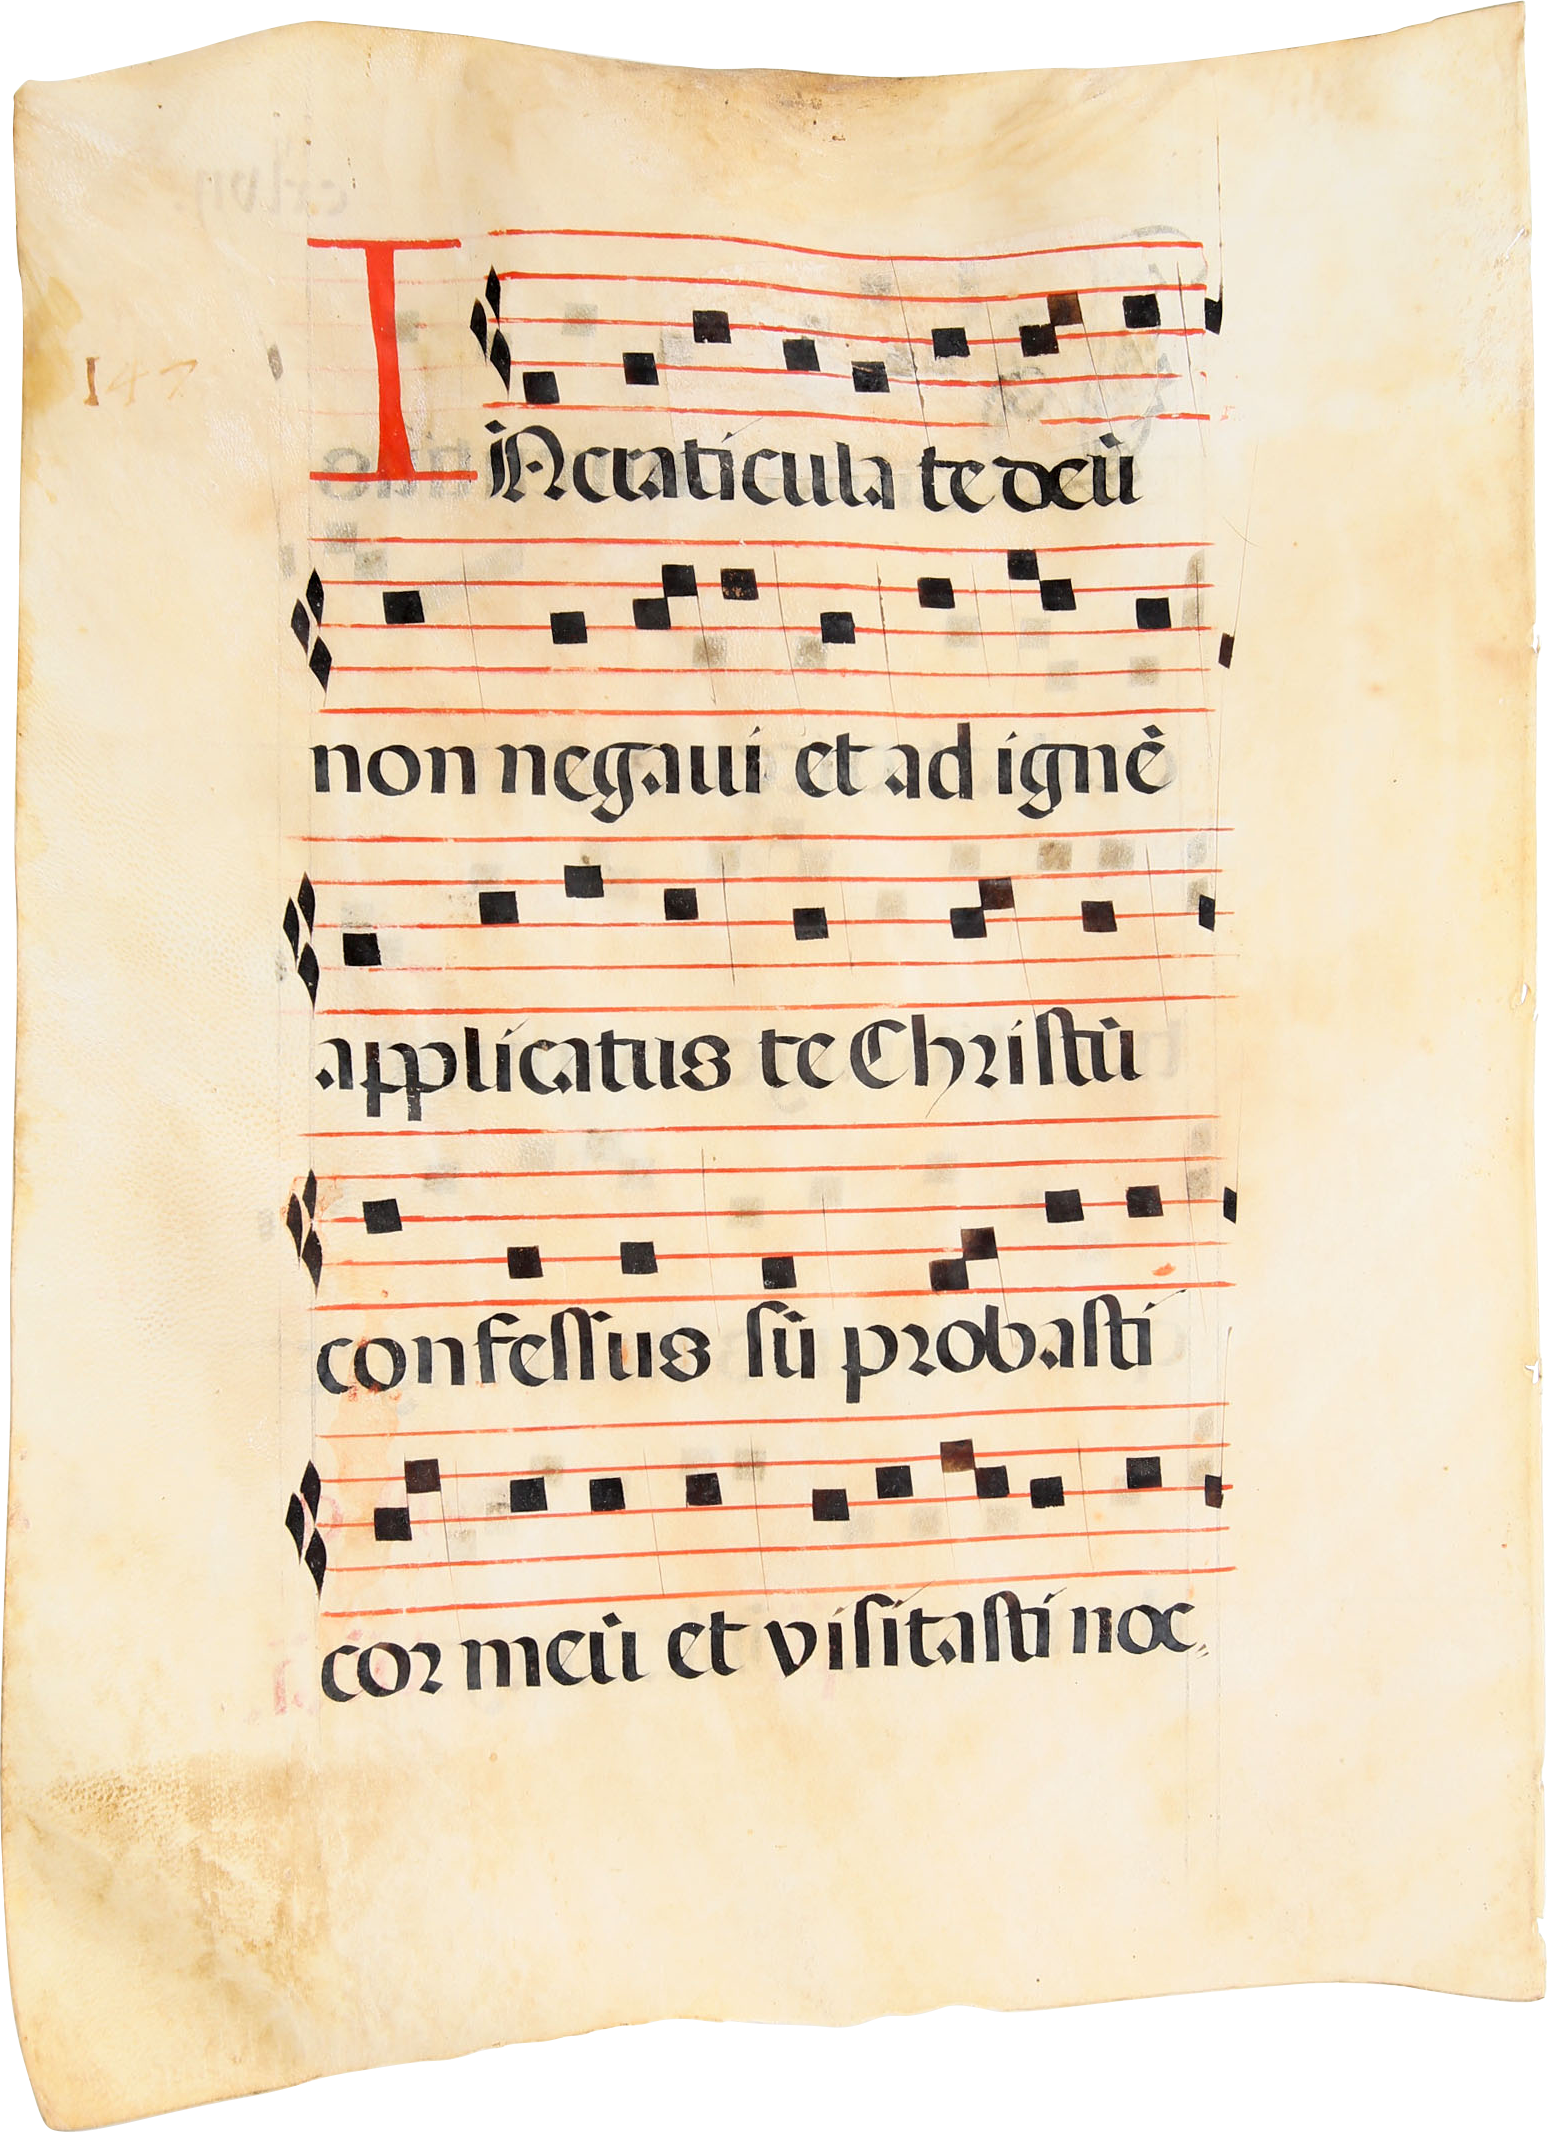 147
I iN craticula te deū
non negaui et ad ignē
applicatus te Christū
confessus sū probasti
cor meū et visitasti noc